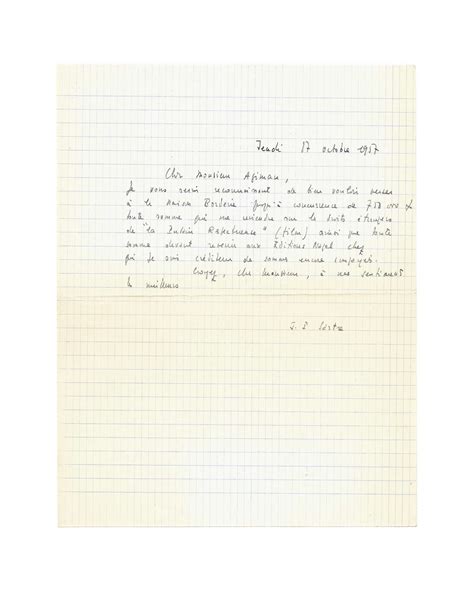 Jeudi 17 octobre 1957
Cher Monsieur Agiman,
Je vous serais reconnaissant de bien vouloir verser
à la Maison Borderie jusqu'à concurrence de 750.000
toute somme qui me viendra sur les droits étrangers
de "la Putain Respectueuse" (film) ainsi que toute
somme devant revenir aux Editions Nagel chez
qui je suis créditeur de sommes encore impayées.
Croyez, cher Monsieur, à mes sentiments
les meilleurs
J. P. Sartre